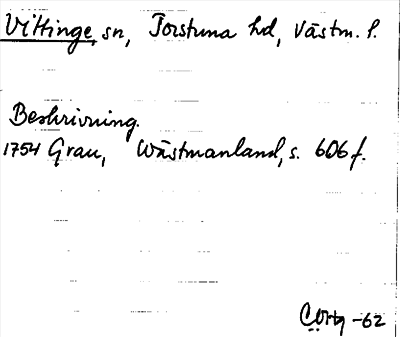 Vittinge sn, Torstuna hd, Västm. l.
Beskrivning.
1754 Grau, Wästmanland, s. 606 f.
-62